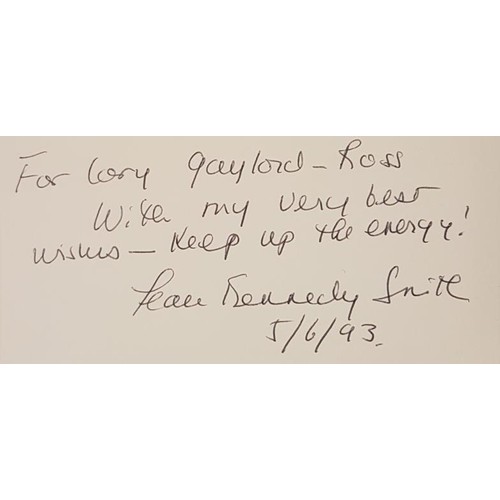 For Cory Gaylord - Ross
With my very best
wishes - Keep up the energy!
Jean Kennedy Smith
5/6/93.